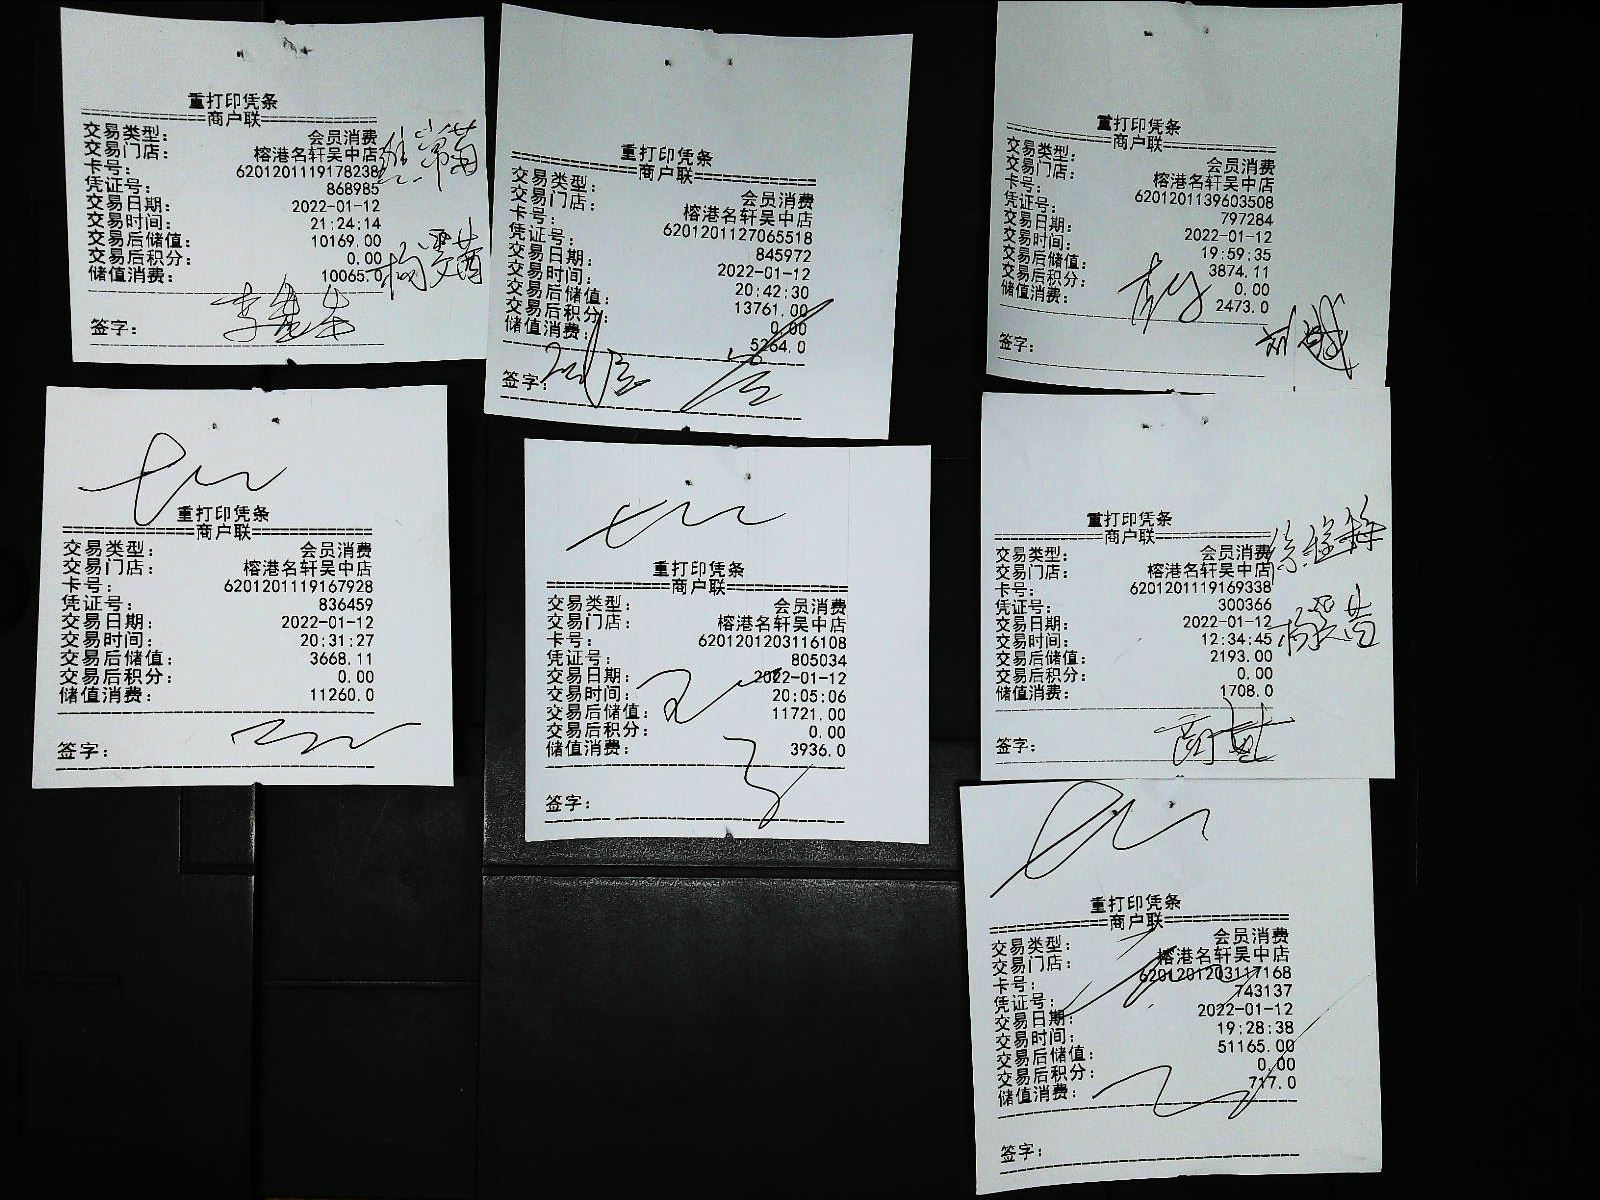 重打印凭条
====================商户联====================
交易类型: 会员消费
交易门店: 榕港名轩吴中店
卡号: 6201201119178238
凭证号: 868985
交易日期: 2022-01-12
交易时间: 21:24:14
交易后储值: 10169.00
交易后积分: 0.00
储值消费: 10065.0
签字:
重打印凭条
====================商户联====================
交易类型: 会员消费
交易门店: 榕港名轩吴中店
卡号: 6201201127065518
凭证号: 845972
交易日期: 2022-01-12
交易时间: 20:42:30
交易后储值: 13761.00
交易后积分: 0.00
储值消费: 5264.0
签字:
重打印凭条
====================商户联====================
交易类型: 会员消费
交易门店: 榕港名轩吴中店
卡号: 6201201139603508
凭证号: 797284
交易日期: 2022-01-12
交易时间: 19:59:35
交易后储值: 3874.11
交易后积分: 0.00
储值消费: 2473.0
签字:
重打印凭条
====================商户联====================
交易类型: 会员消费
交易门店: 榕港名轩吴中店
卡号: 6201201119167928
凭证号: 836459
交易日期: 2022-01-12
交易时间: 20:31:27
交易后储值: 3668.11
交易后积分: 0.00
储值消费: 11260.0
签字:
重打印凭条
====================商户联====================
交易类型: 会员消费
交易门店: 榕港名轩吴中店
卡号: 6201201203116108
凭证号: 805034
交易日期: 2022-01-12
交易时间: 20:05:06
交易后储值: 11721.00
交易后积分: 0.00
储值消费: 3936.0
签字:
重打印凭条
====================商户联====================
交易类型: 会员消费
交易门店: 榕港名轩吴中店
卡号: 6201201119169338
凭证号: 300366
交易日期: 2022-01-12
交易时间: 12:34:45
交易后储值: 2193.00
交易后积分: 0.00
储值消费: 1708.0
签字:
重打印凭条
====================商户联====================
交易类型: 会员消费
交易门店: 榕港名轩吴中店
卡号: 6201201203117168
凭证号: 743137
交易日期: 2022-01-12
交易时间: 19:28:38
交易后储值: 51165.00
交易后积分: 0.00
储值消费: 717.0
签字: